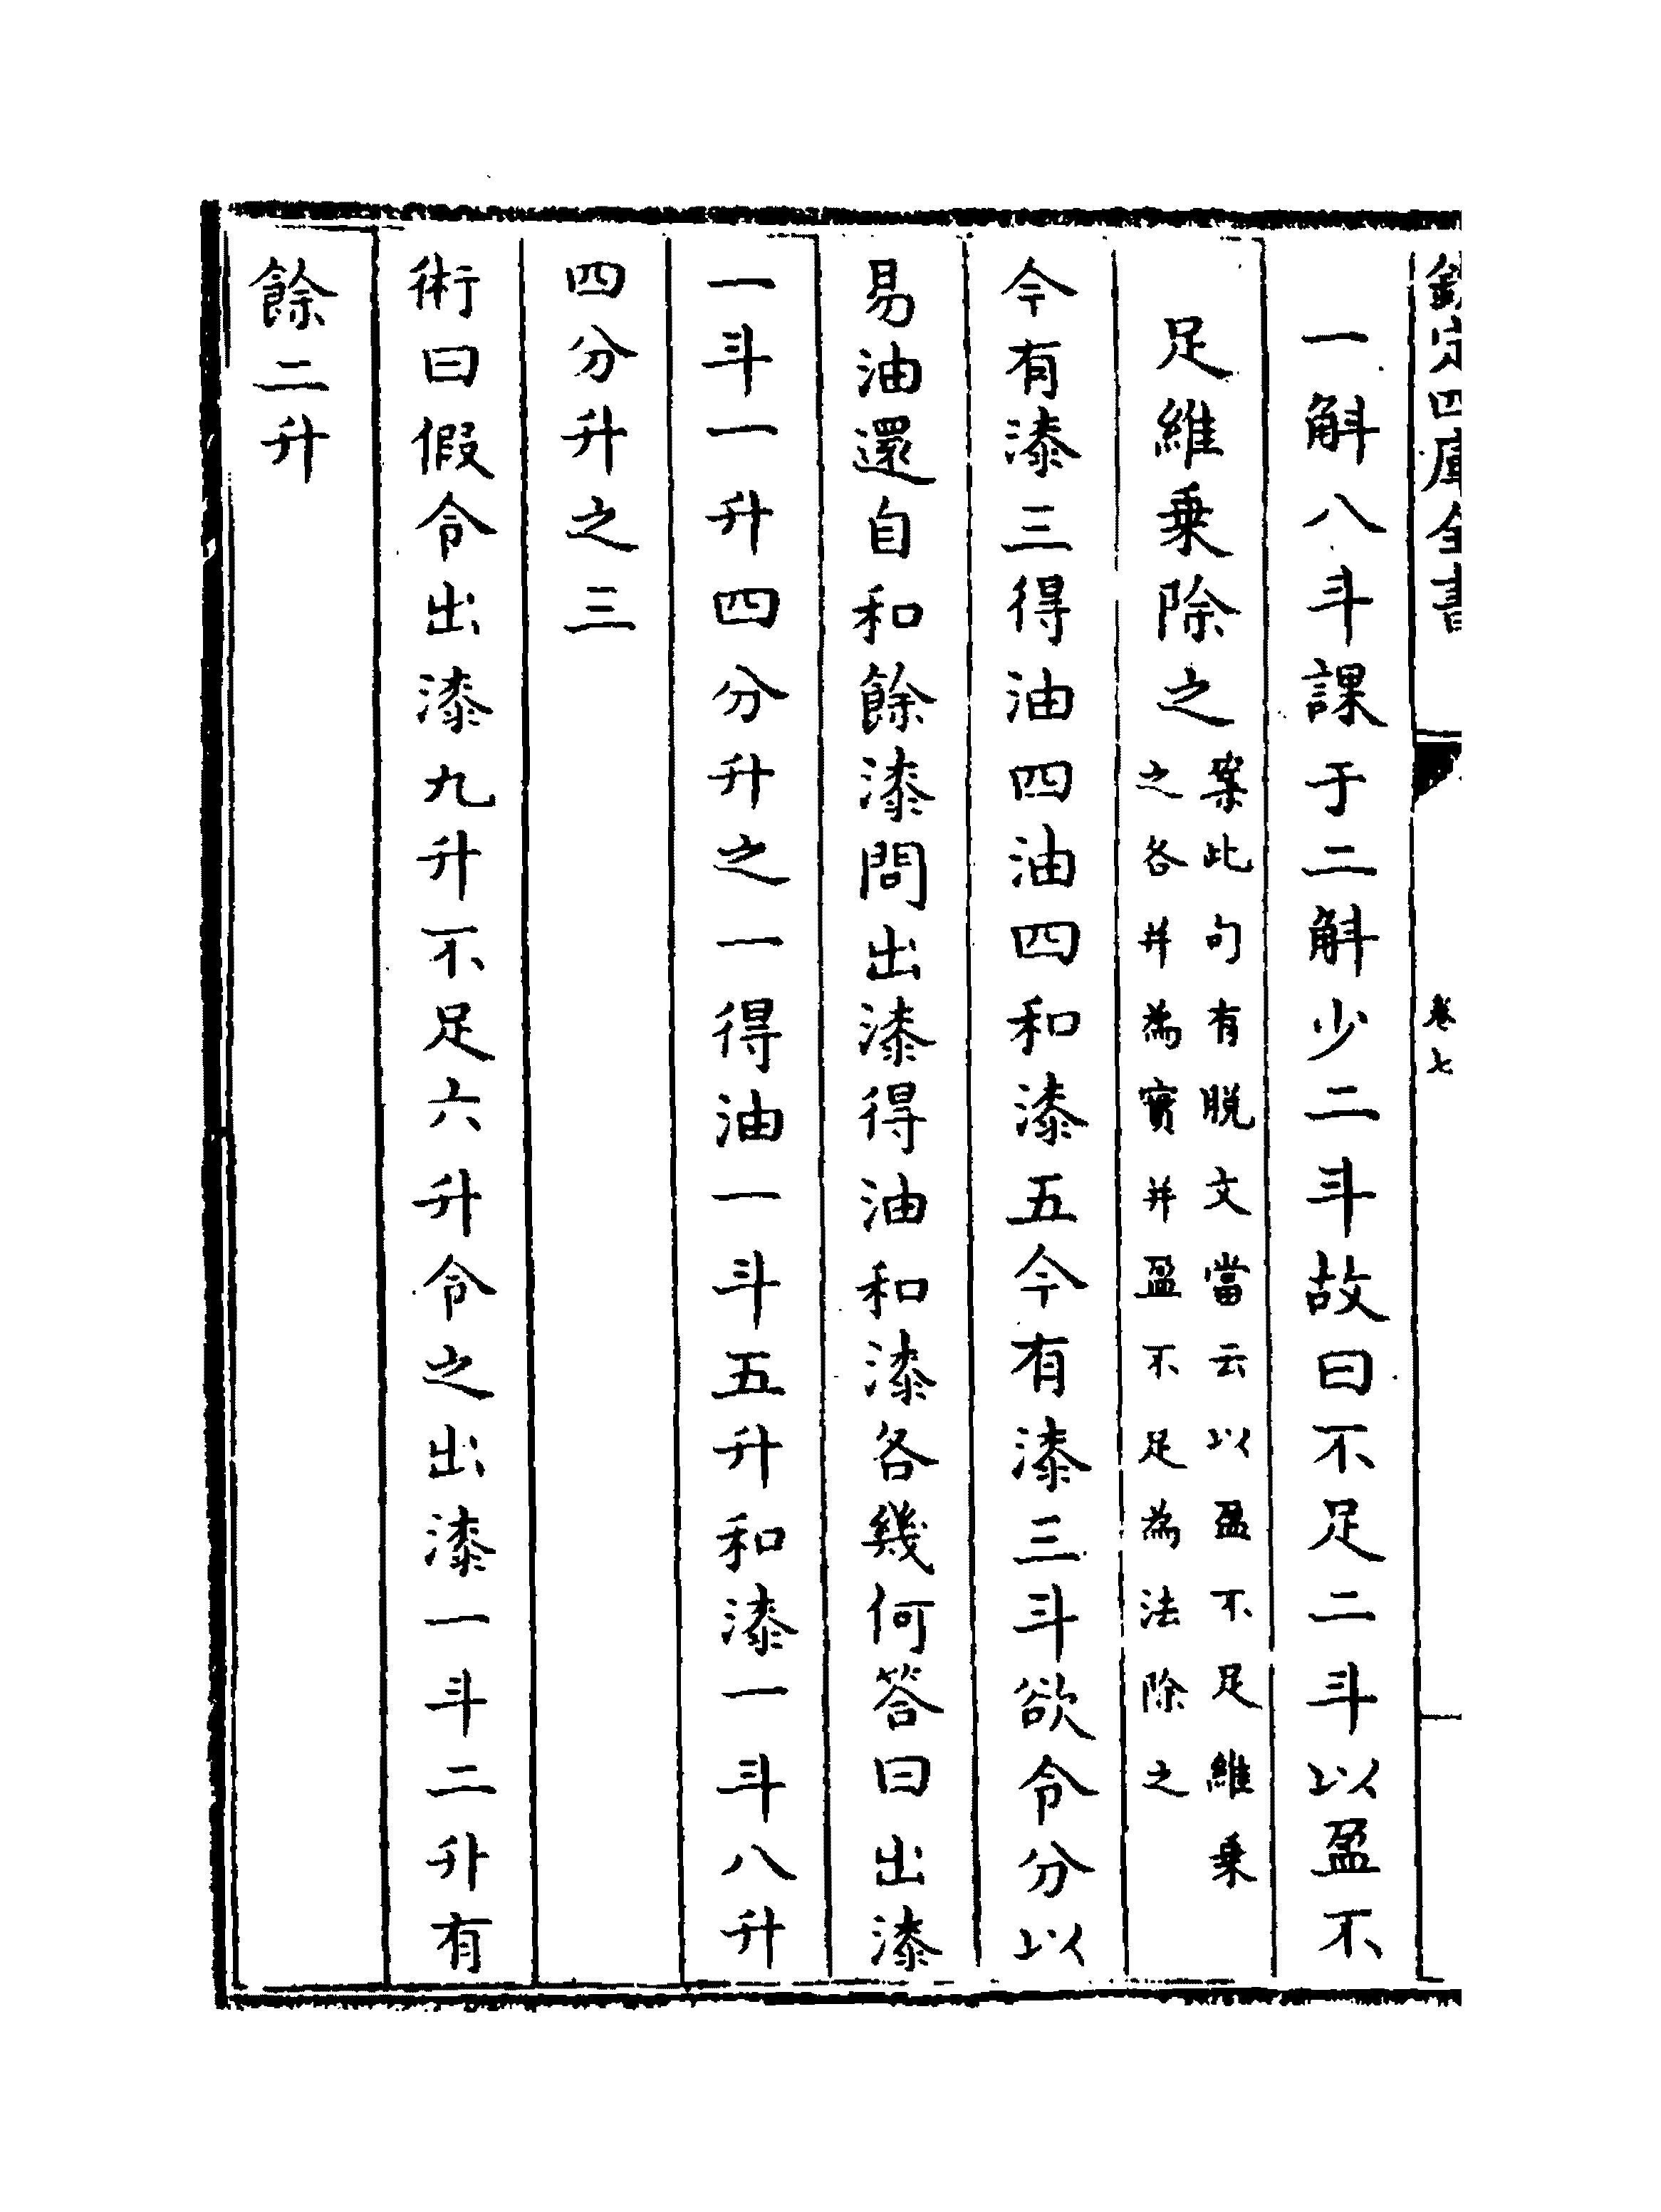 欽定四庫全書
卷七
一斛八斗課于二斛少二斗故曰不足二斗以盈不
足維乗除之
案此句有脱文當云以盈不足維乗
之各并為實并盈不足為法除之
今有漆三得油四油四和漆五今有漆三斗欲令分以
易油還自和餘漆問出漆得油和漆各幾何答曰出漆
一斗一升四分升之一得油一斗五升和漆一斗八升
四分升之三
術曰假令出漆九升不足六升令之出漆一斗二升有
餘二升